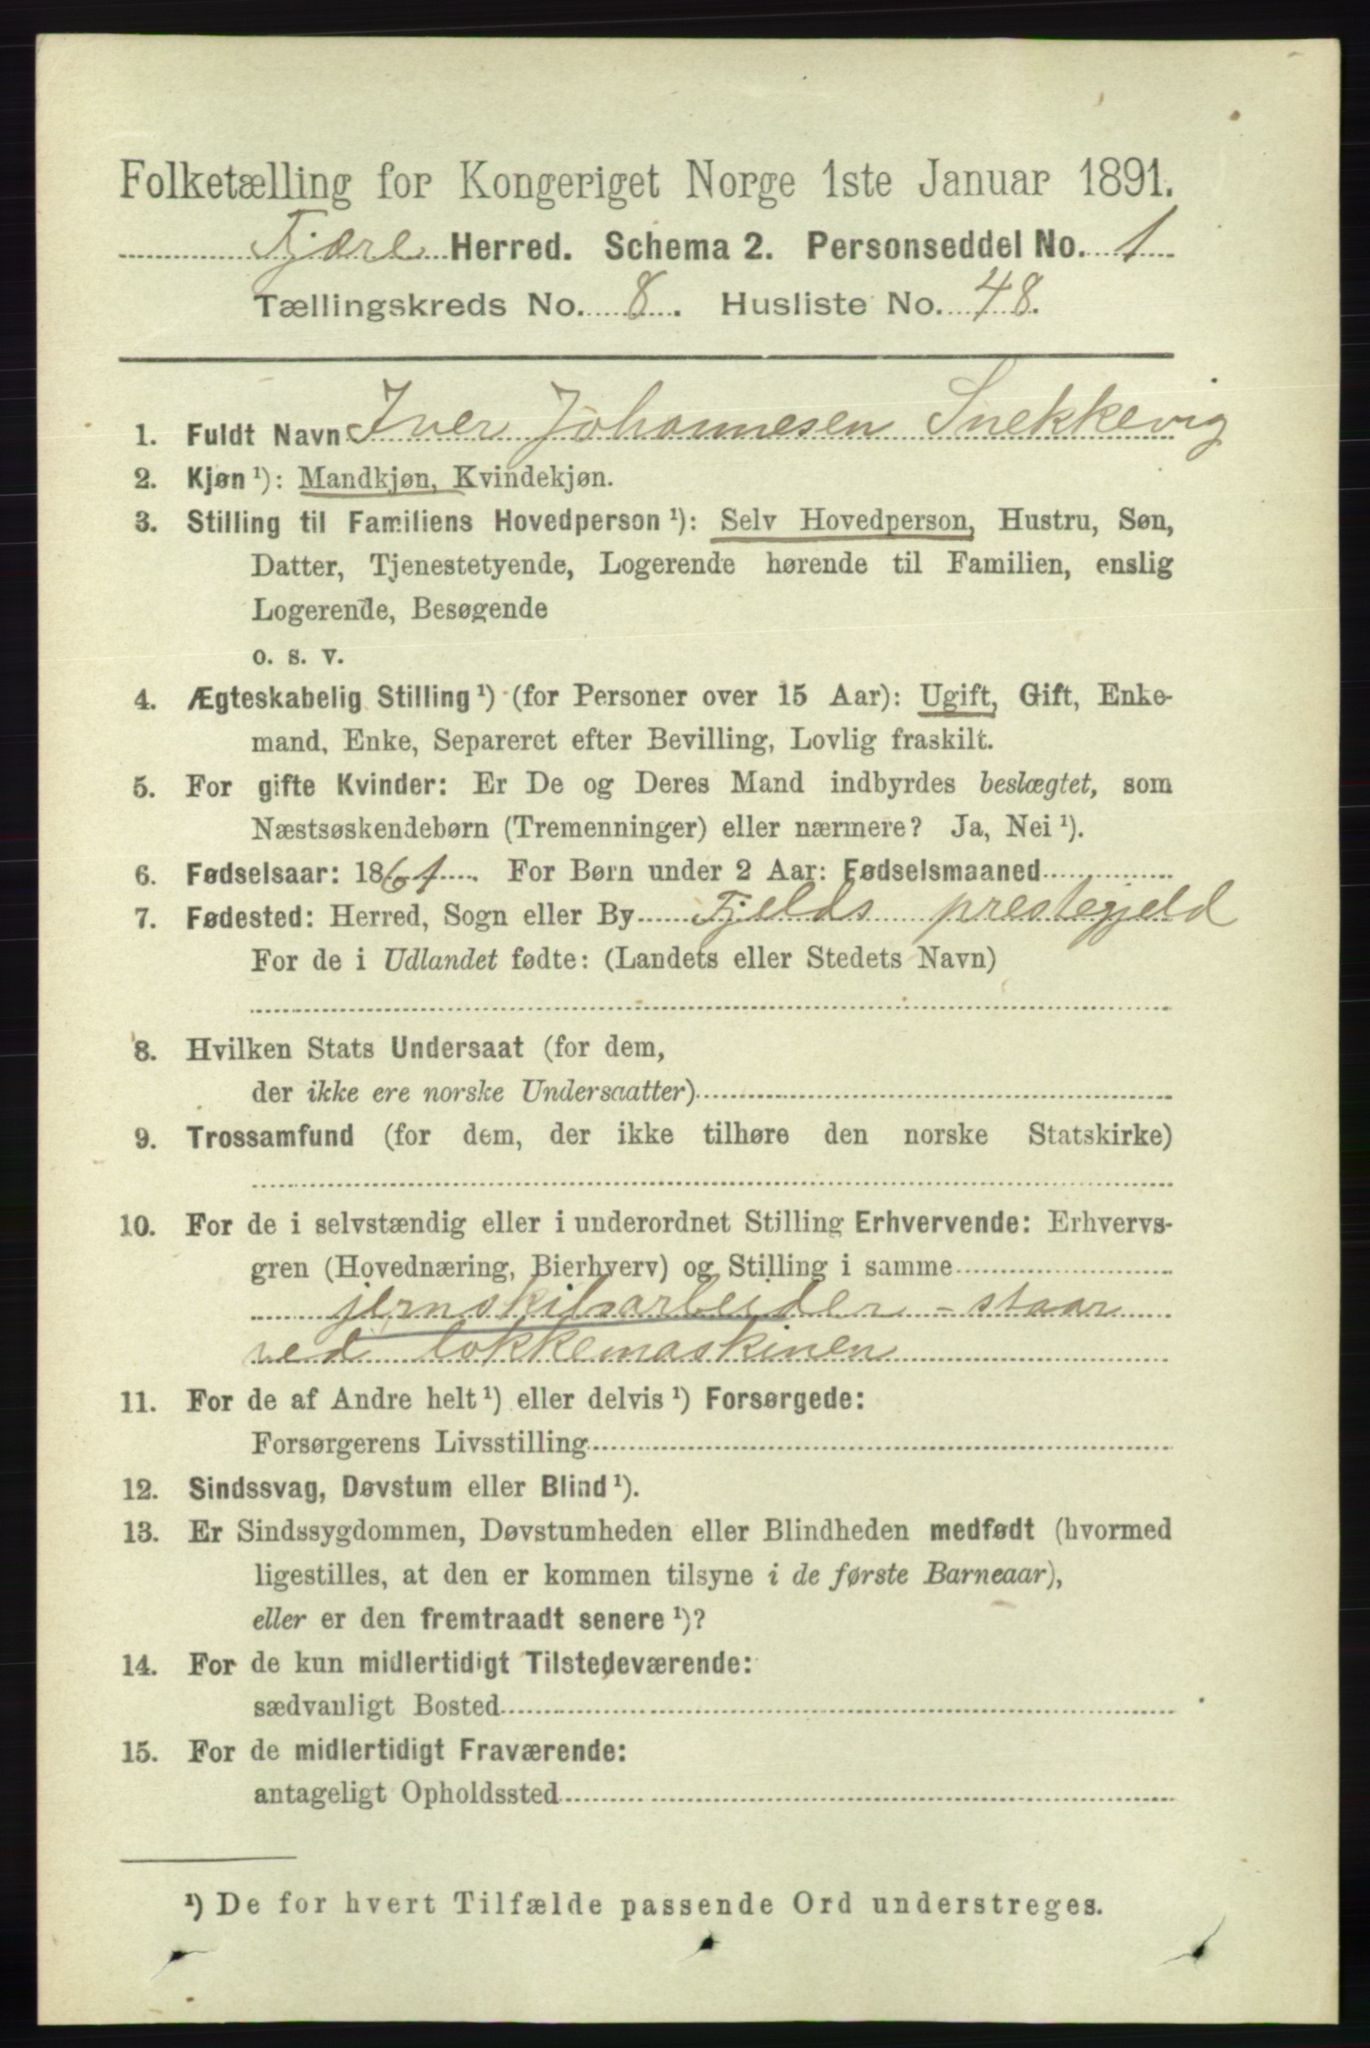 Folketælling for Kongeriget Norge 1ste Januar 1891.
Fjære Herred. Schema 2. Personseddel No. 1
Tællingskreds No. 8. Husliste No. 48.
1. Fuldt Navn Iver Johannesen Snekkevig
2. Kjøn ¹): Mandkjøn, Kvindekjøn.
3. Stilling til Familiens Hovedperson ¹): Selv Hovedperson, Hustru, Søn,
Datter, Tjenestetyende, Logerende hørende til Familien, enslig
Logerende, Besøgende
o. s. v.
4. Ægteskabelig Stilling ¹) (for Personer over 15 Aar): Ugift, Gift, Enke-
mand, Enke, Separeret efter Bevilling, Lovlig fraskilt.
5. For gifte Kvinder: Er De og Deres Mand indbyrdes beslægtet, som
Næstsøskendebørn (Tremenninger) eller nærmere? Ja, Nei ¹).
6. Fødselsaar: 1861. For Børn under 2 Aar: Fødselsmaaned
7. Fødested: Herred, Sogn eller By Fjelds prestegjeld
For de i Udlandet fødte: (Landets eller Stedets Navn)
8. Hvilken Stats Undersaat (for dem,
der ikke ere norske Undersaatter)
9. Trossamfund (for dem, der ikke tilhøre den norske Statskirke)
10. For de i selvstændig eller i underordnet Stilling Erhvervende: Erhvervs-
gren (Hovednæring, Bierhverv) og Stilling i samme
jernskibsarbeider - staar
ved lokkemaskinen
11. For de af Andre helt ¹) eller delvis ¹) Forsørgede:
Forsørgerens Livsstilling
12. Sindssvag, Døvstum eller Blind ¹).
13. Er Sindssygdommen, Døvstumheden eller Blindheden medfødt (hvormed
ligestilles, at den er kommen tilsyne i de første Barneaar),
eller er den fremtraadt senere ¹)?
14. For de kun midlertidigt Tilstedeværende:
sædvanligt Bosted
15. For de midlertidigt Fraværende:
antageligt Opholdssted
¹) De for hvert Tilfælde passende Ord understreges.